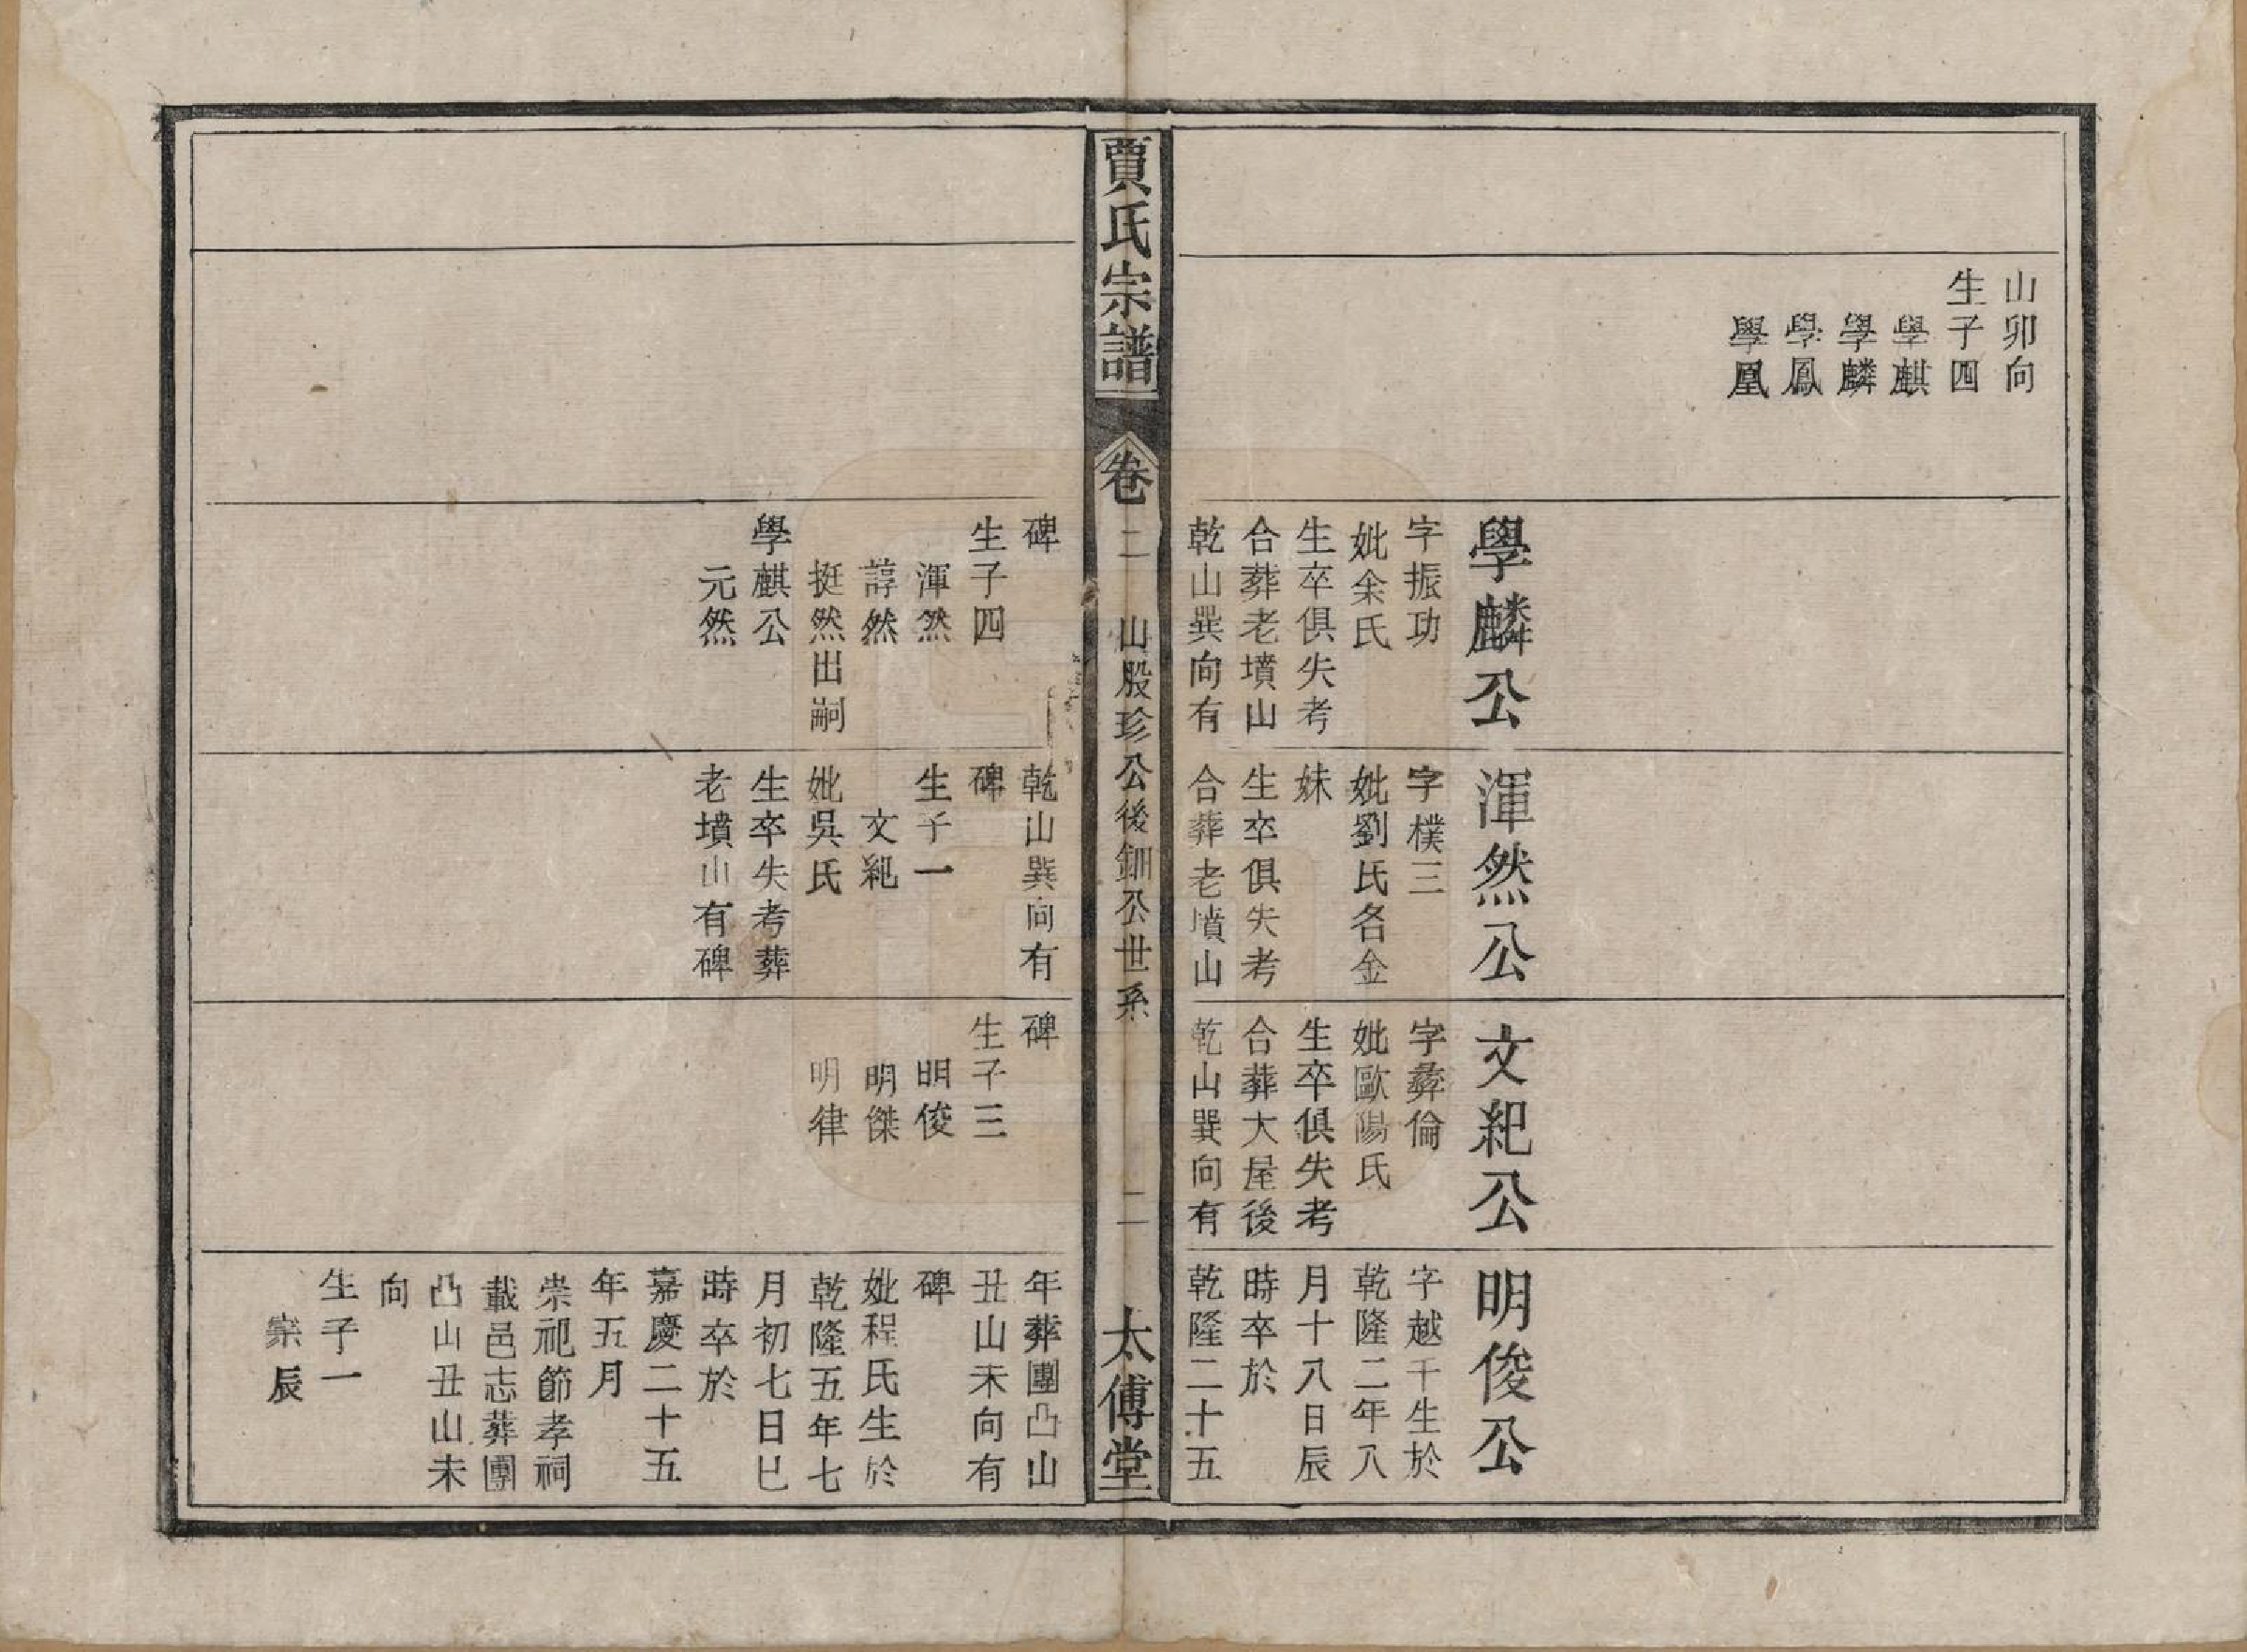 山卯向
生子四
學麒
學麟
學鳳
學凰
學麟公
字振功
妣余氏
生卒俱失考
合葬老墳山
乾山巽向有
渾然公
字樸三
妣劉氏名金
妹
生卒俱失考
合葬老墳山
文紀公
字彝倫
妣歐陽氏
生卒俱失考
合葬大屋後
乾山巽向有
明俊公
字越千生於
乾隆二年八
月十八日辰
時卒於
乾隆二十五
賈氏宗譜
卷二
山股珍公後鈿公世系
二
太傅堂
碑
生子四
渾然
諄然
挺然出嗣
學麒公
元然
乾山巽向有
碑
生子一
文紀
妣吳氏
生卒失考葬
老墳山有碑
碑
生子三
明俊
明傑
明律
年葬團凸山
丑山未向有
碑
妣程氏生於
乾隆五年七
月初七日巳
時卒於
嘉慶二十五
年五月
崇祀節孝祠
載邑志葬團
凸山丑山未
向
生子一
宗辰